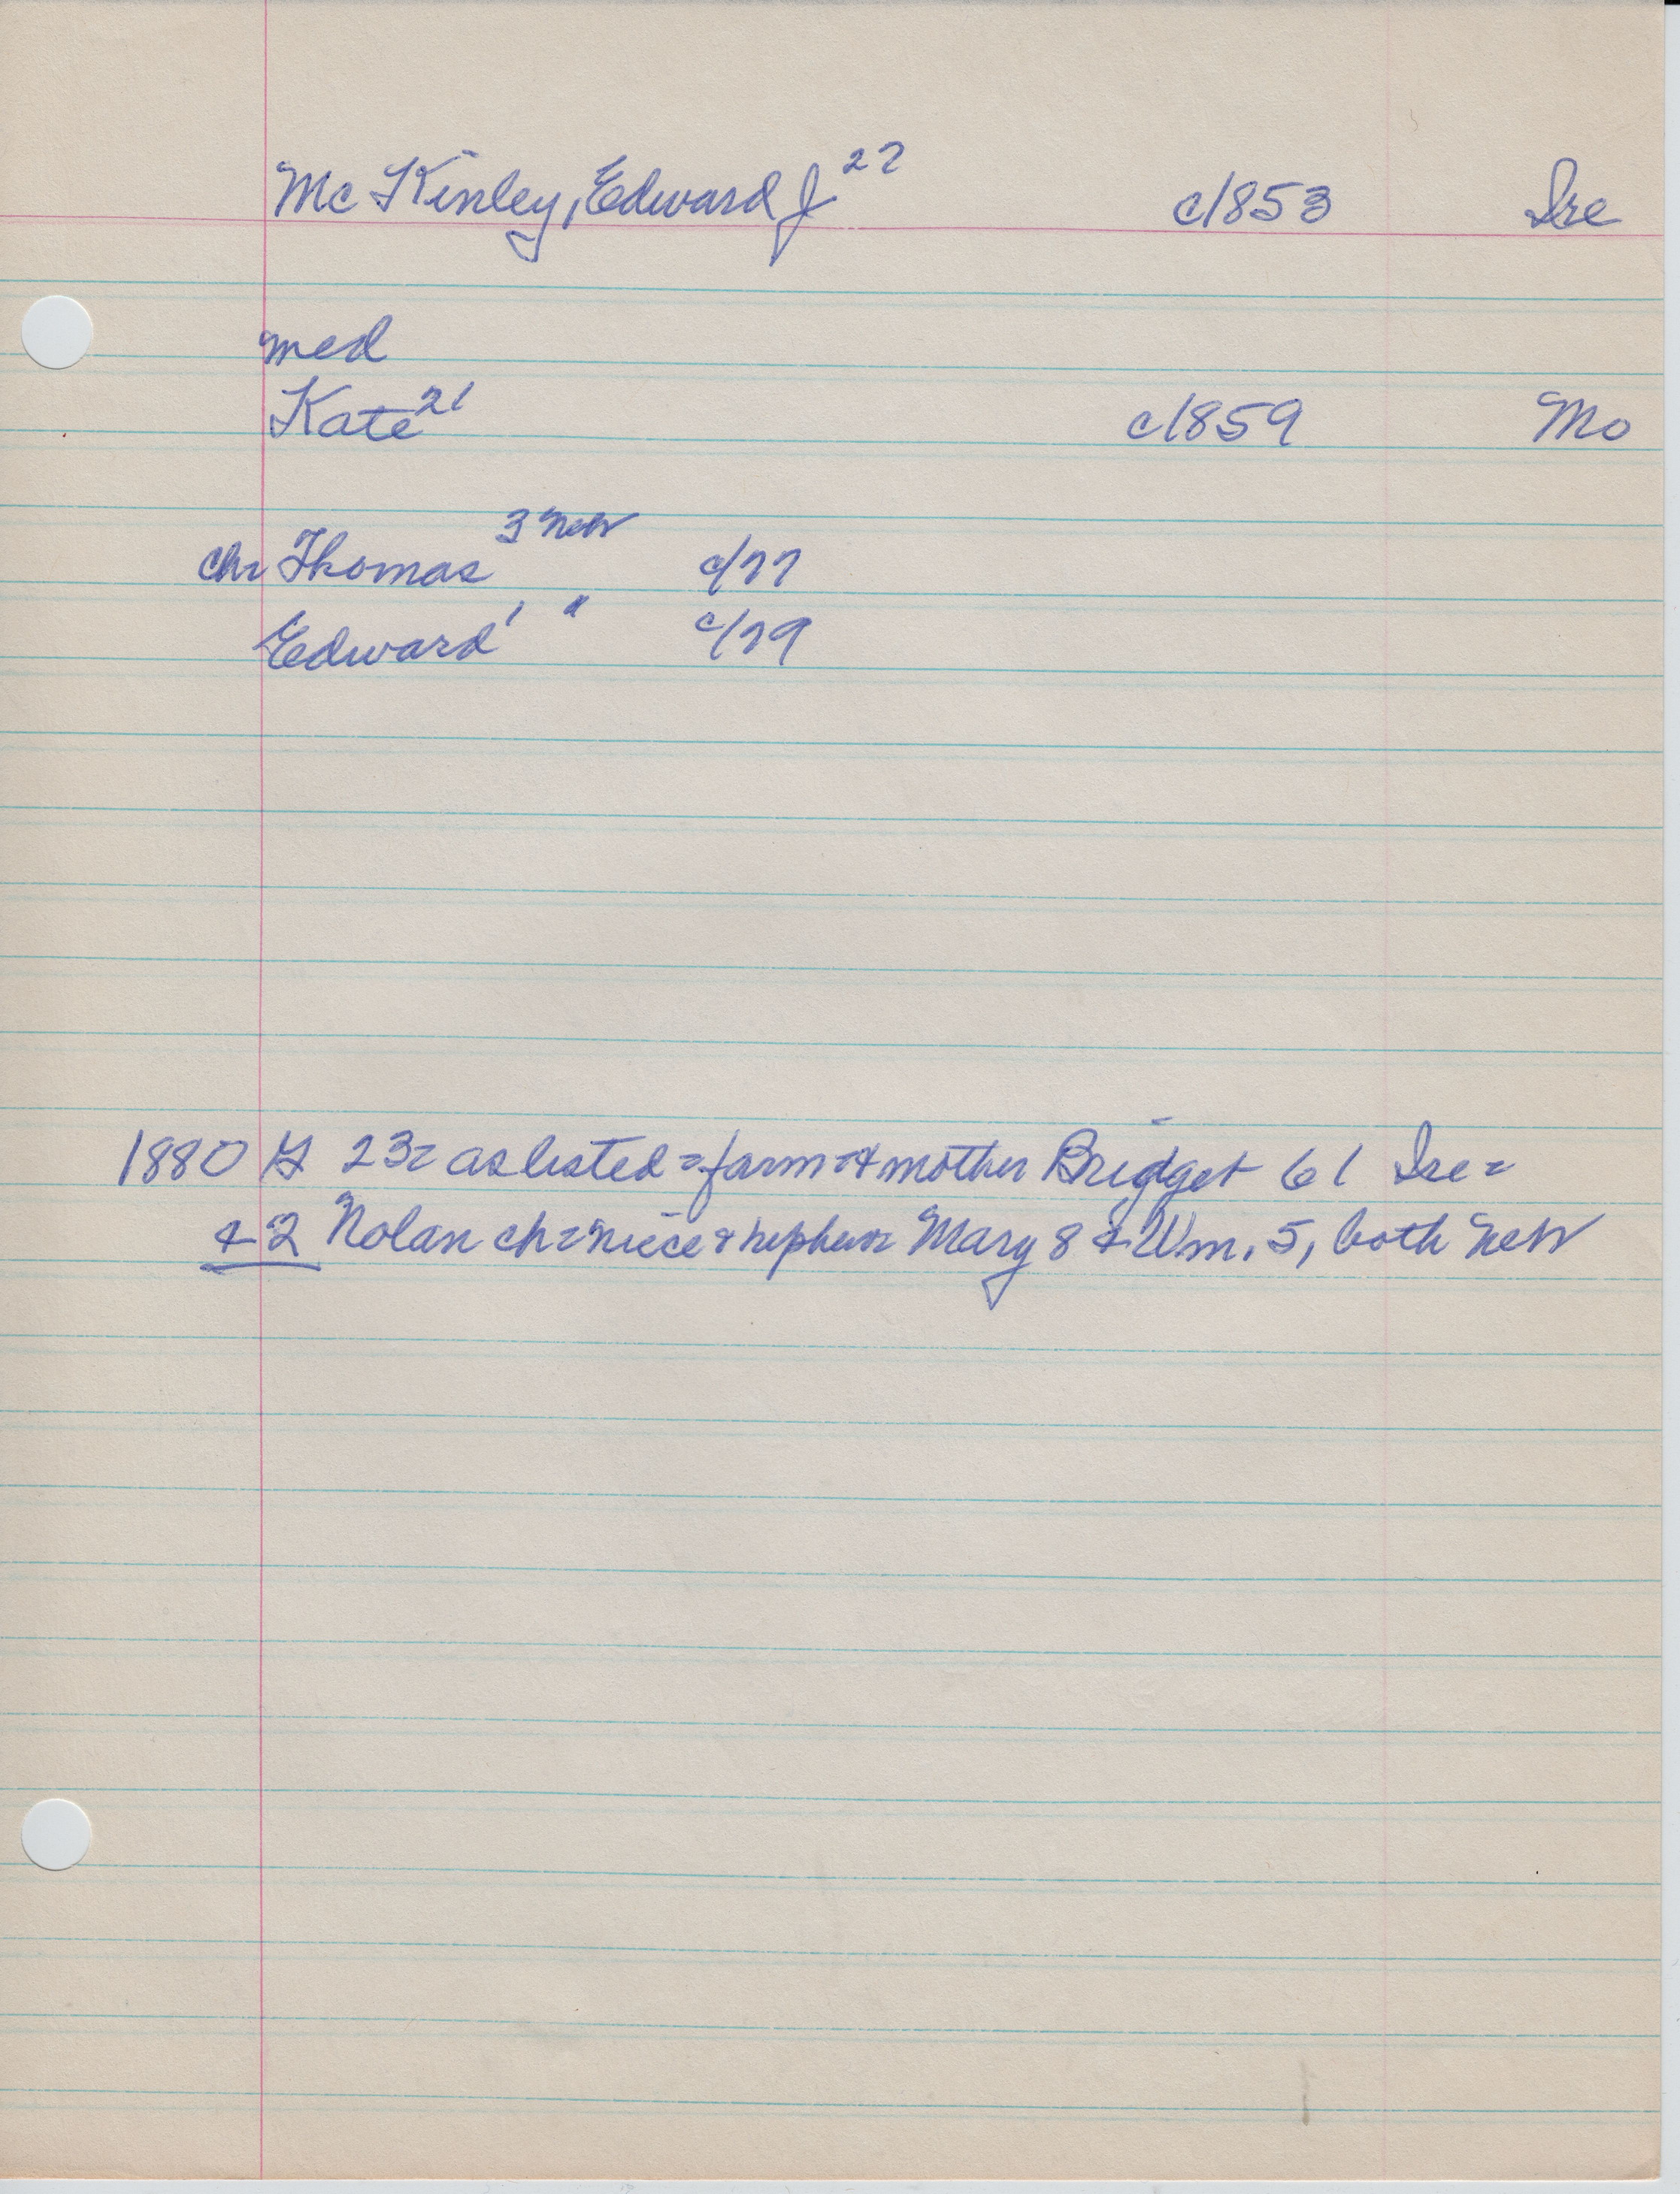 Mc Kinley, Edward J 27 c1853 Ire
med
Kate 21 c1859 Mo
ch= Thomas 3 Nev c/77
Edward 1 " c/79
1880 23= as listed = farm = & mother Bridget 61 Ire =
& 2 Nolan ch = niece & nephew = Mary 8 & Wm. 5, both Nev